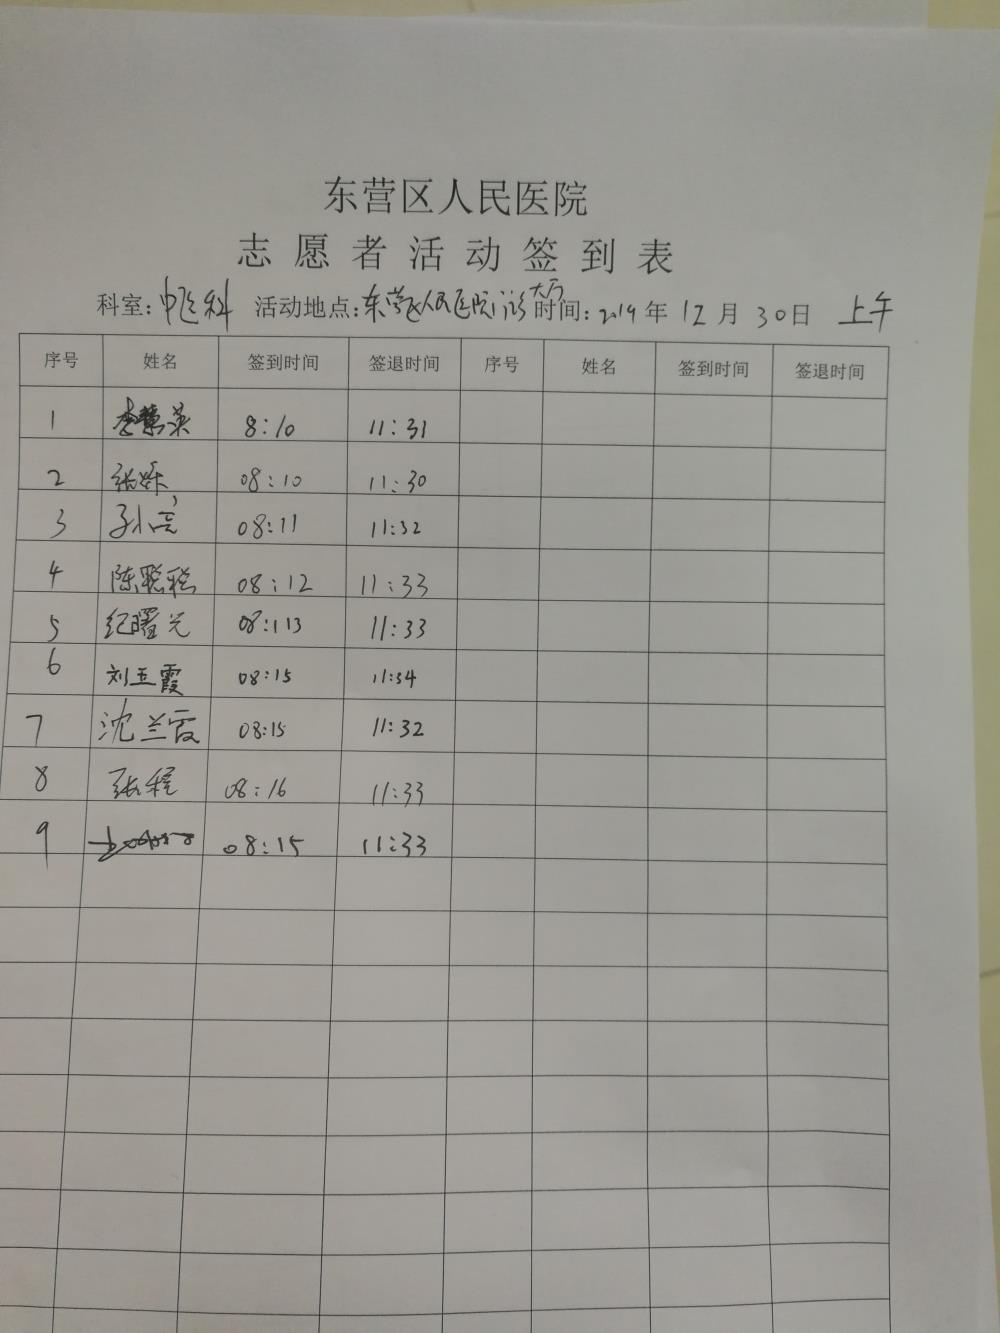 东营区人民医院
志愿者活动签到表
科室：中医科 活动地点：东营区人民医院门诊大厅 时间：2019年12月30日 上午
序号 姓名 签到时间 签退时间 序号 姓名 签到时间 签退时间
1 李慧英 8:10 11:31
2 张 08:10 11:30
3 孙亮 08:11 11:32
4 陈聪聪 08:12 11:33
5 纪曙光 08:113 11:33
6 刘玉霞 08:15 11:34
7 沈兰霞 08:15 11:32
8 张程 08:16 11:33
9 08:15 11:33